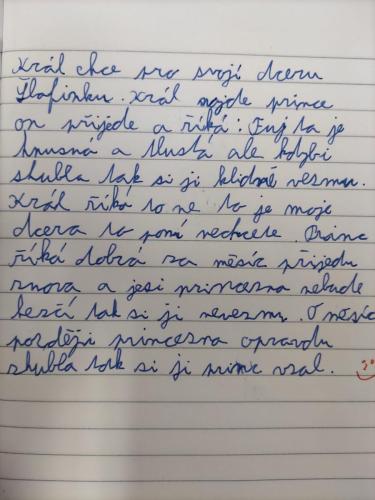 Král chce pro svojí dceru
Šlofinku. Král najde prince
on přijede a říká: Fuj ta je
hnusná a tlustá ale kdybi
zhubla tak si ji klidně vezmu.
Král říká to ne to je moje
dcera to poní nechcete. Princ
říká dobrá za měsíc přijedu
znova a jesi princezna nebude
hezčí tak si ji nevezmu. O měsíc
později princezna opravdu
zhubla tak si ji princ vzal.